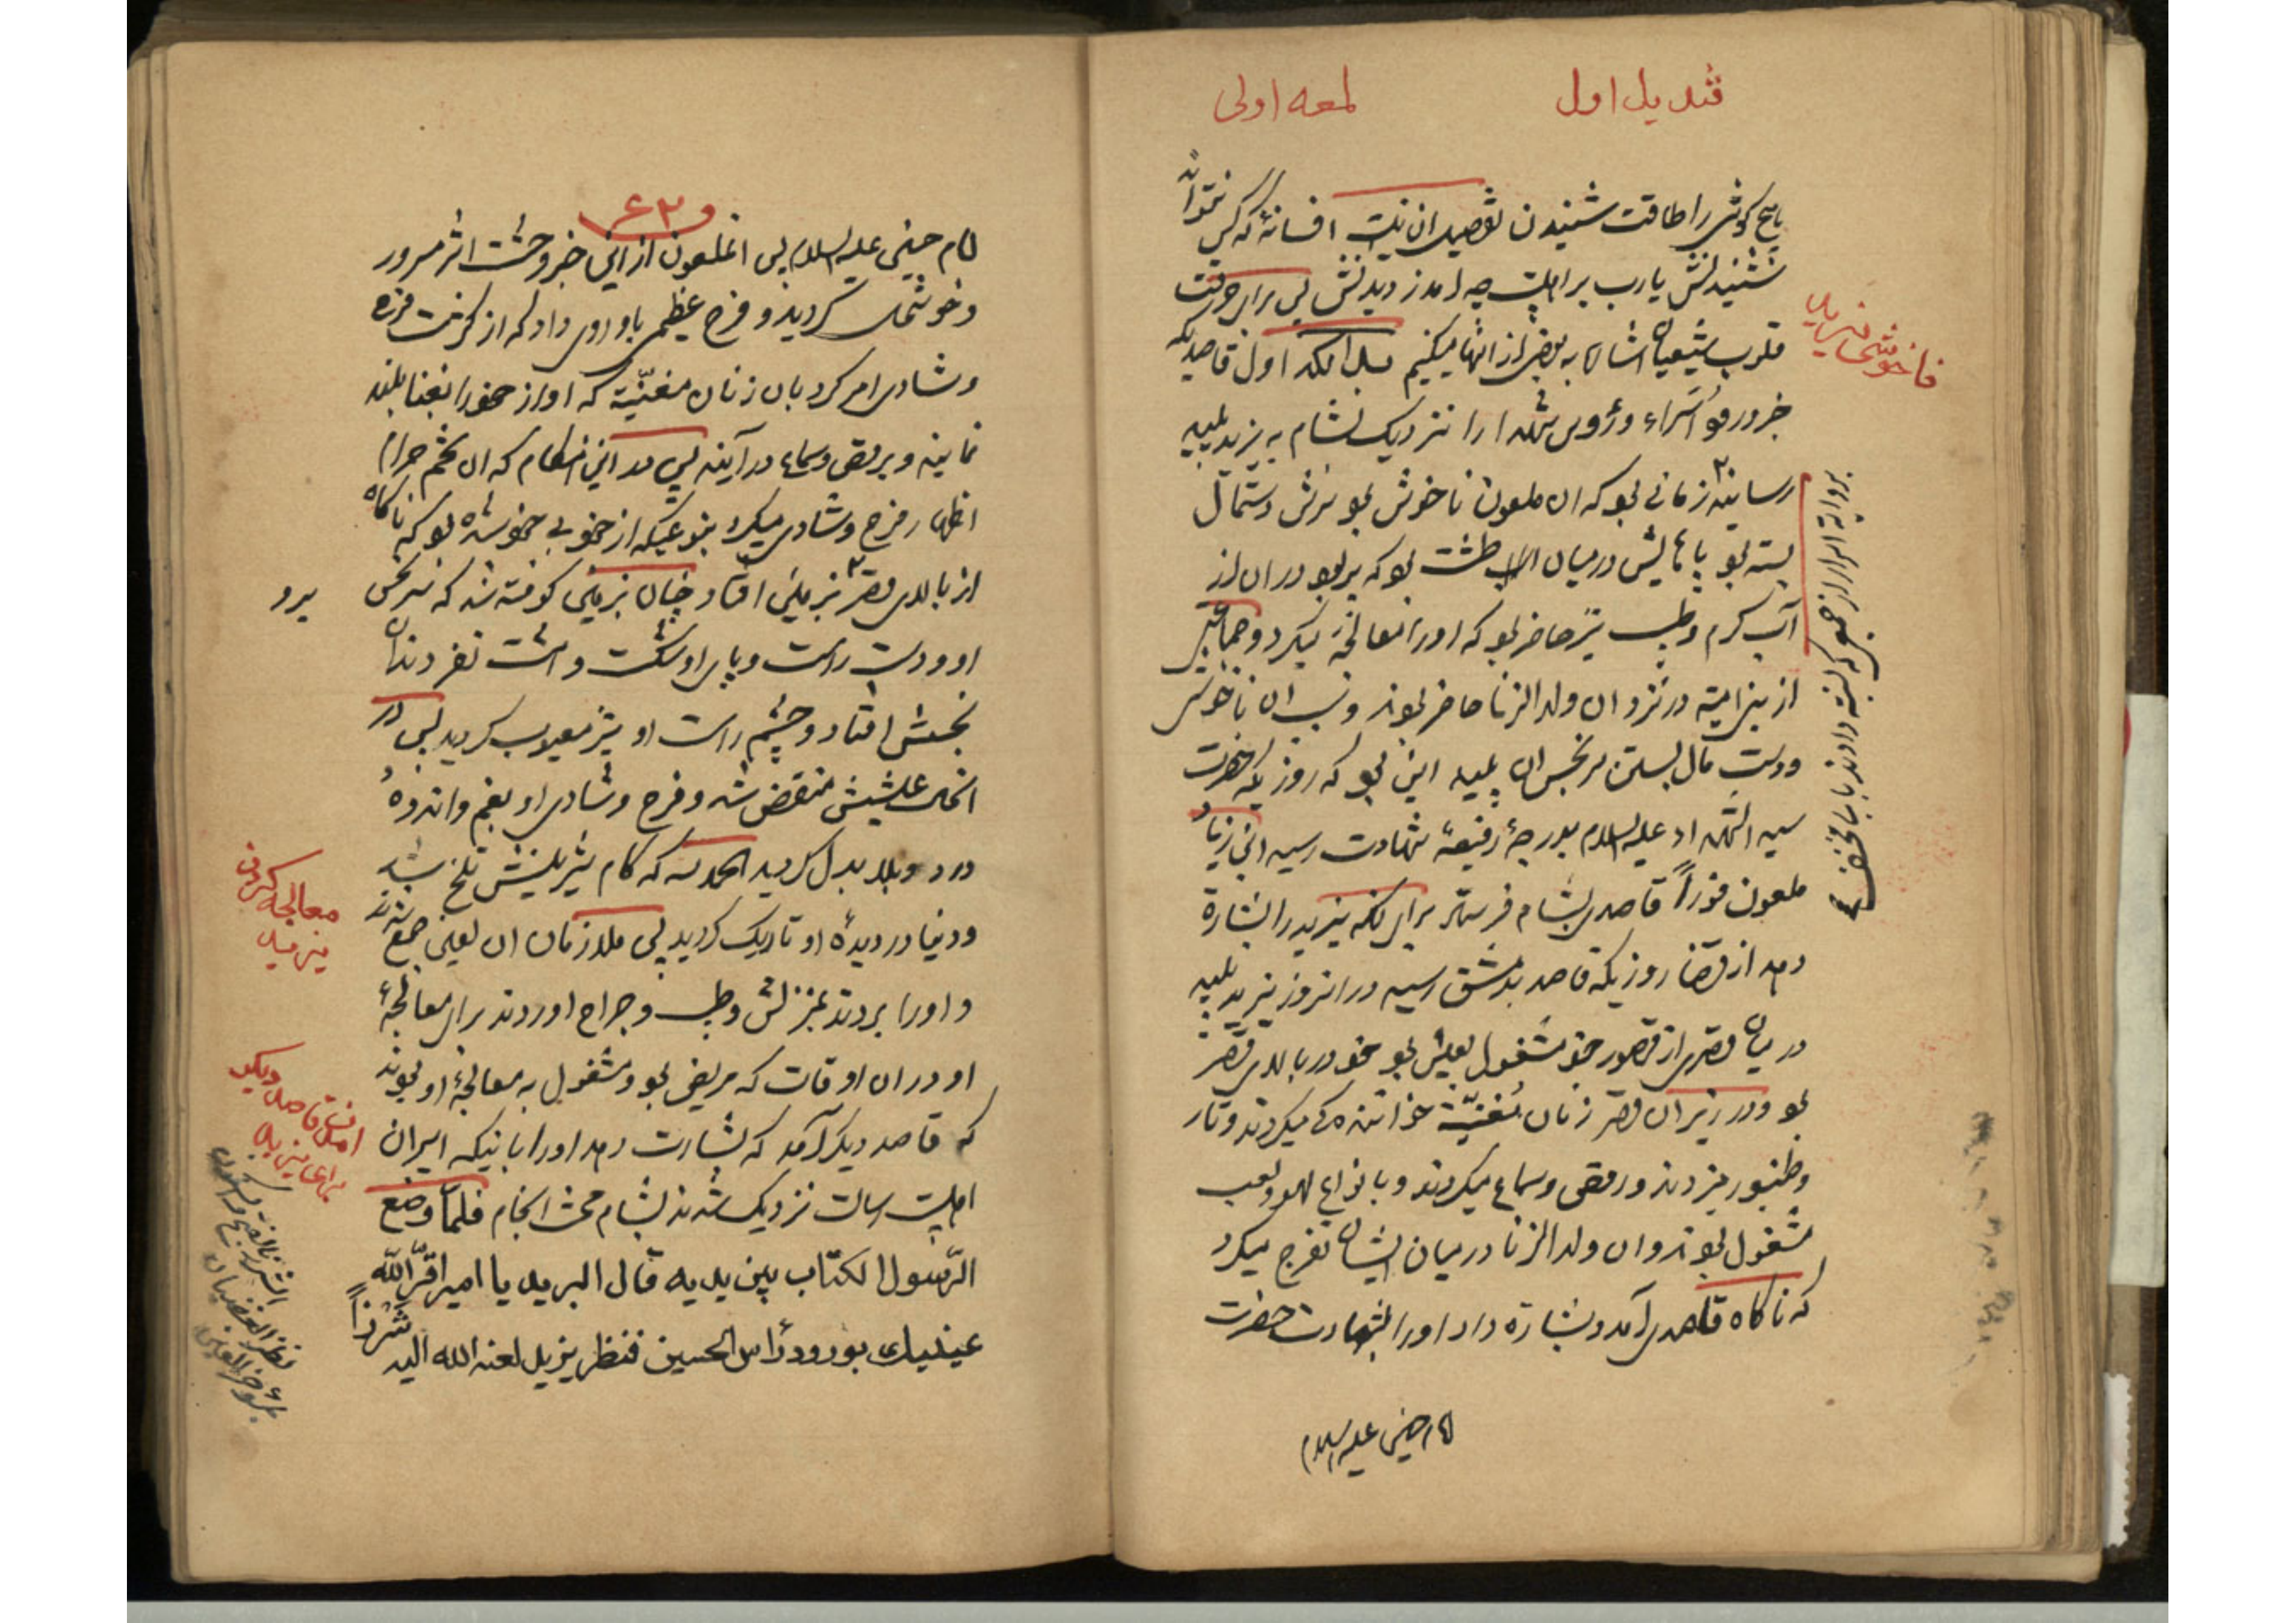 قندیل اول لمعه اولی
هیچ گوش را طاقت شنیدن تفصیل ان نیست افسانهٔ که کس نتواند
شنیدنش یارب بر اهلبیت چه آمد ز دیدنش پس برای حرقت
قلوب شیعیان اشاره به بعضی از انها میکنیم اول قاصدیکه
خبر ورود اسراء و رؤس شهدا را نزدیک بشام به یزید پلید
رسانید زمانی بود که ان ملعون ناخوش بود سرش دستمال
بسته بود پاهایش در میان طشت بود که پر بود در ان از
آب گرم و طبیب نیز حاضر بود که او را معالجه میکرد و جماعتی
از بنی امیه در نزد ان ولد الزنا حاضر بودند و سبب ان ناخوشی
و دستمال بستن سر نجس ان پلید این بود که روزیکه حضرت
سید الشهداء علیه السلام بدرجهٔ رفیعهٔ شهادت رسید ابن زیاد
ملعون فوراً قاصدی بشام فرستاد برای انکه یزید را بشارة
دهد از قضا روزیکه قاصد بدمشق رسید در انروز یزید پلید
در میان قصری از قصور خود مشغول بعیش بود خود در بالای قصر
بود و در زیر ان قصر زنان مغنیّة خوانندگی میکردند و تار
و طنبور میزدند و رقص و سماع میکردند و بانواع لهو و لعب
مشغول بودند و ان ولد الزنا در میان ایشان تفرج میکرد
که ناگاه قاصدی آمد و بشارة داد او را بشهادت حضرت
امام حسین علیه السلام
ناخوشی یزید
امام حسین علیه السلام پس انملعون از این خبر وحشت اثر مسرور
و خوشحال گردید و فرح عظیمی باو روی داد که از کثرت فرح
و شادی امر کرد بان زنان مغنّیة که اواز خود را بغنا بلند
نمایند و برقص و سماع در آیند پس در این هنگام که ان تخم حرام
اظهار فرح و شادی میکرد بنوعیکه از خود بی خود شده بود که ناگاه
از بالای قصر بزمین افتاد چنان بزمین کوفته شد که سر نجس
او و دست راست و پای او شکست و هشت نفر دندان
نجسش افتاد و چشم راست او نیز معیوب گردید پس در
انحال عیشش منقض شد و فرح و شادی او بغم و اندوه
درد و بلا بدل گردید الحمد لله که کام شیرینش تلخ شد
و دنیا در دیدهٔ او تاریک گردید پس ملازمان ان لعین جمع شدند
و او را بردند بمنزلش و طبیب و جراح اوردند برای معالجهٔ
او در ان اوقات که مریض بود و مشغول به معالجهٔ او بودند
که قاصد دیگر آمد که بشارت دهد او را باینکه اسیران
اهلبیت رسالت نزدیک شدند بشام محنت انجام فلمّا وضع
الرّسول الکتاب بین یدیه قال البرید یا امیر اقرّ الله
عینیک بورود رأس الحسین فنظر یزید لعنه الله الیه شزراً
معالجه کردن
یزید
امدن قاصد دیگر
برای یزید